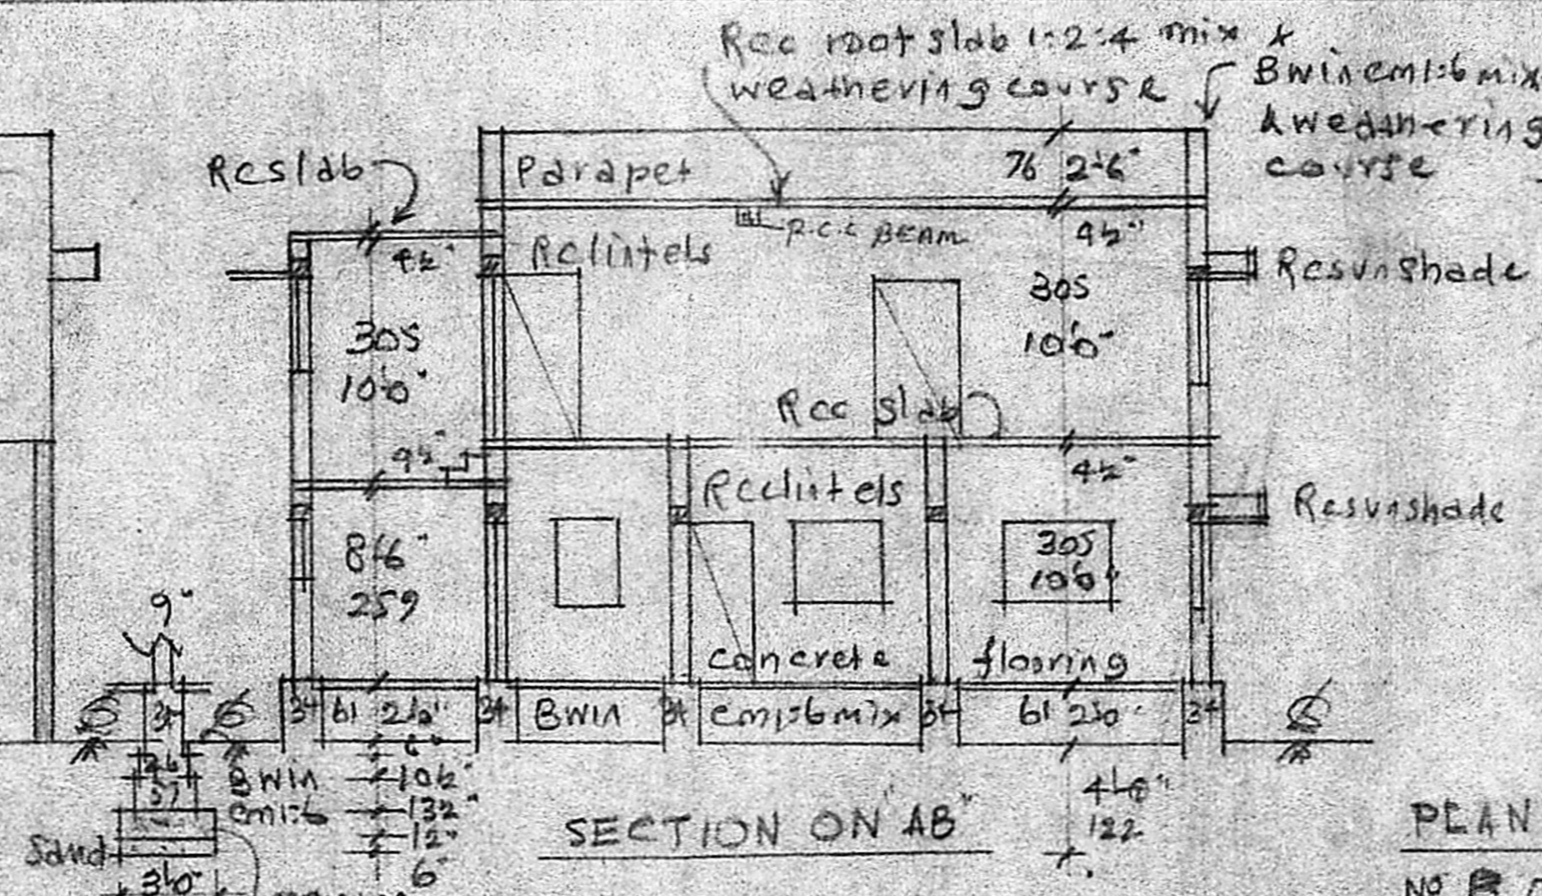 Rcc roof slab 1:2:4 mix &
weathering course
Bwincm1:6 mix
& weathering
course
Rcslab
Parapet
76 2'6"
4½"
R.C.C BEAM
4½"
Rclintels
Rcsunshade
305
10'0"
305
10'0"
Rcc slab
4½"
4½"
Rcclintels
Rcsunshade
8'6"
259
305
10'0
9"
concrete flooring
34 61 2'0" 34 BWIN 34 cm1:6mix 34 61 2'0" 34
6"
BWIN
cm1:6
10½"
13½"
12"
6"
4'0"
122
SECTION ON 'AB'
Sand
3'0"
PLAN
NO